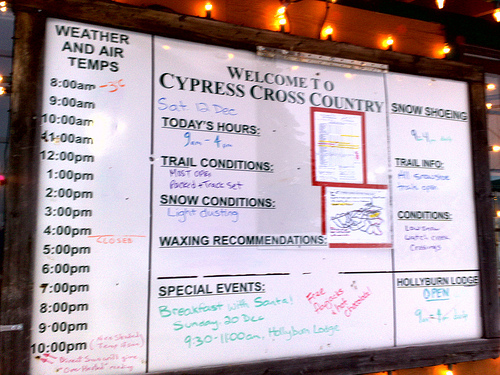 WEATHER
AND AIR
TEMPS
8:00am -3°
9:00am
10:00am
11:00am
12:00pm
1:00pm
2:00pm
3:00pm
4:00pm
CLOSED
5:00pm
6:00pm
7:00pm
8:00pm
9:00pm
10:00pm
WELCOME TO
CYPRESS CROSS COUNTRY
Sat. 12 Dec
TODAY'S HOURS:
9am - 4pm
TRAIL CONDITIONS:
MOST OPEN
Packed + Track Set
SNOW CONDITIONS:
Light dusting
WAXING RECOMMENDATIONS:
SPECIAL EVENTS:
Breakfast with Santa!
Sunday, 20 Dec
9:30-11:00am, Hollyburn Lodge
Free
hot
chocolate!
SNOW SHOEING
TRAIL INFO:
All snowshoe
trails open
CONDITIONS:
Low snow
Watch creek
Crossings
HOLLYBURN LODGE
OPEN